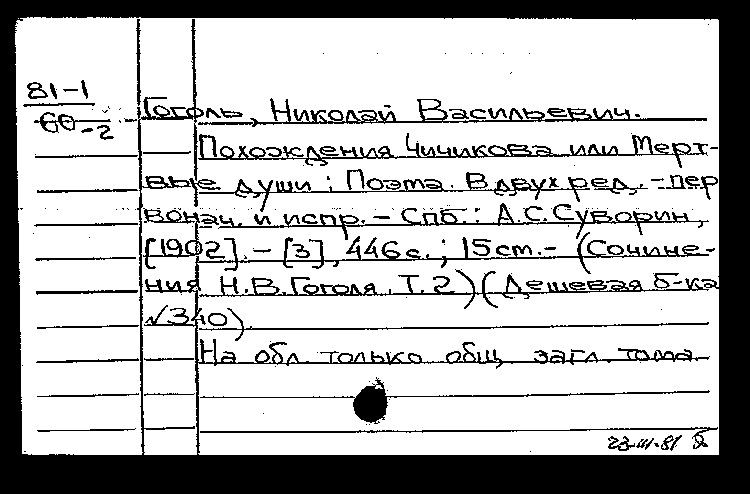 81-1
60-2
Гоголь, Николай Васильевич.
Похождения Чичикова или Мерт-
вые души: Поэма. В двух ред. - пер
вонач. и испр. - Спб.: А.С.Суворин,
[1902]. - [3], 446с.; 15cm. - (Сочине-
ния Н.В.Гоголя. Т.2)(Дешевая б-ка
№340).
На обл. только общ. загл. тома.
23-III-81